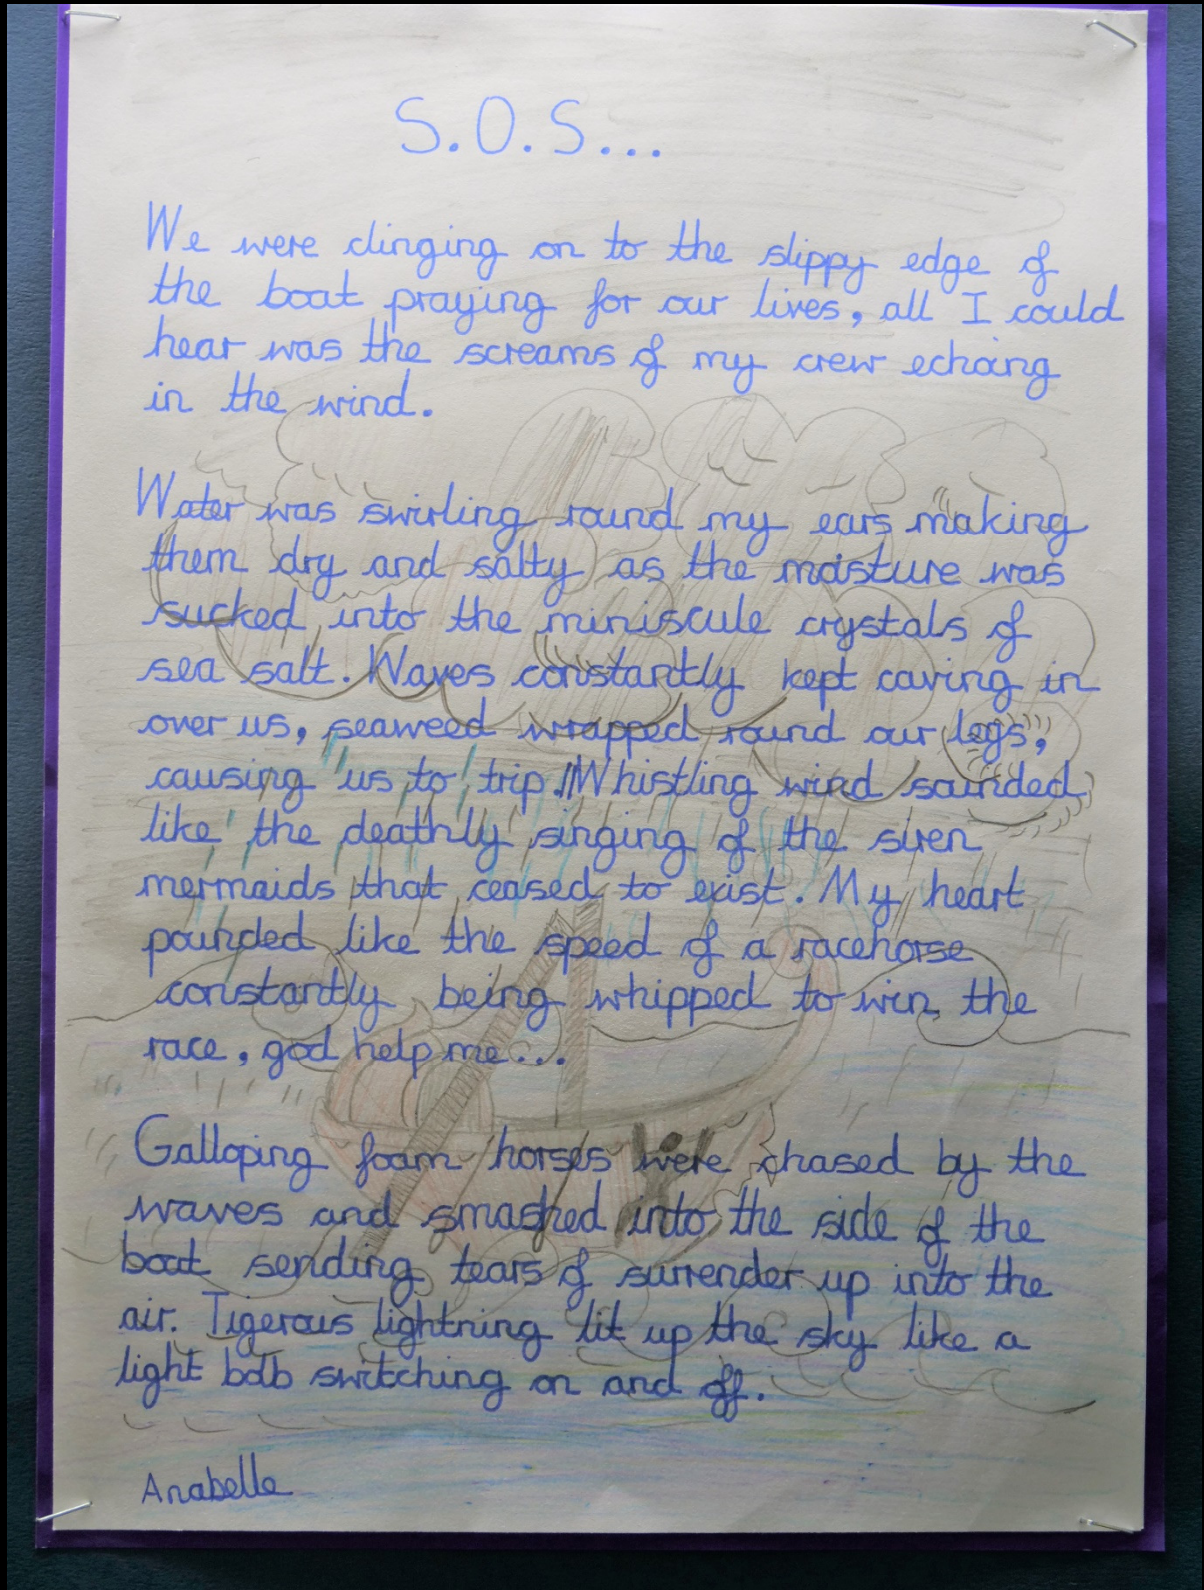 S.O.S...
We were clinging on to the slippy edge of
the boat praying for our lives, all I could
hear was the screams of my crew echoing
in the wind.
Water was swirling round my ears making
them dry and salty as the moisture was
sucked into the miniscule crystals of
sea salt. Waves constantly kept caving in
over us, seaweed wrapped round our legs,
causing us to trip.//Whistling wind sounded
like the deathly singing of the siren
mermaids that ceased to exist. My heart
pounded like the speed of a racehorse
constantly being whipped to win the
race, god help me...
Galloping foam horses were chased by the
waves and smashed into the side of the
boat sending tears of surrender up into the
air. Tigerous lightning lit up the sky like a
light bolb switching on and off.
Anabelle